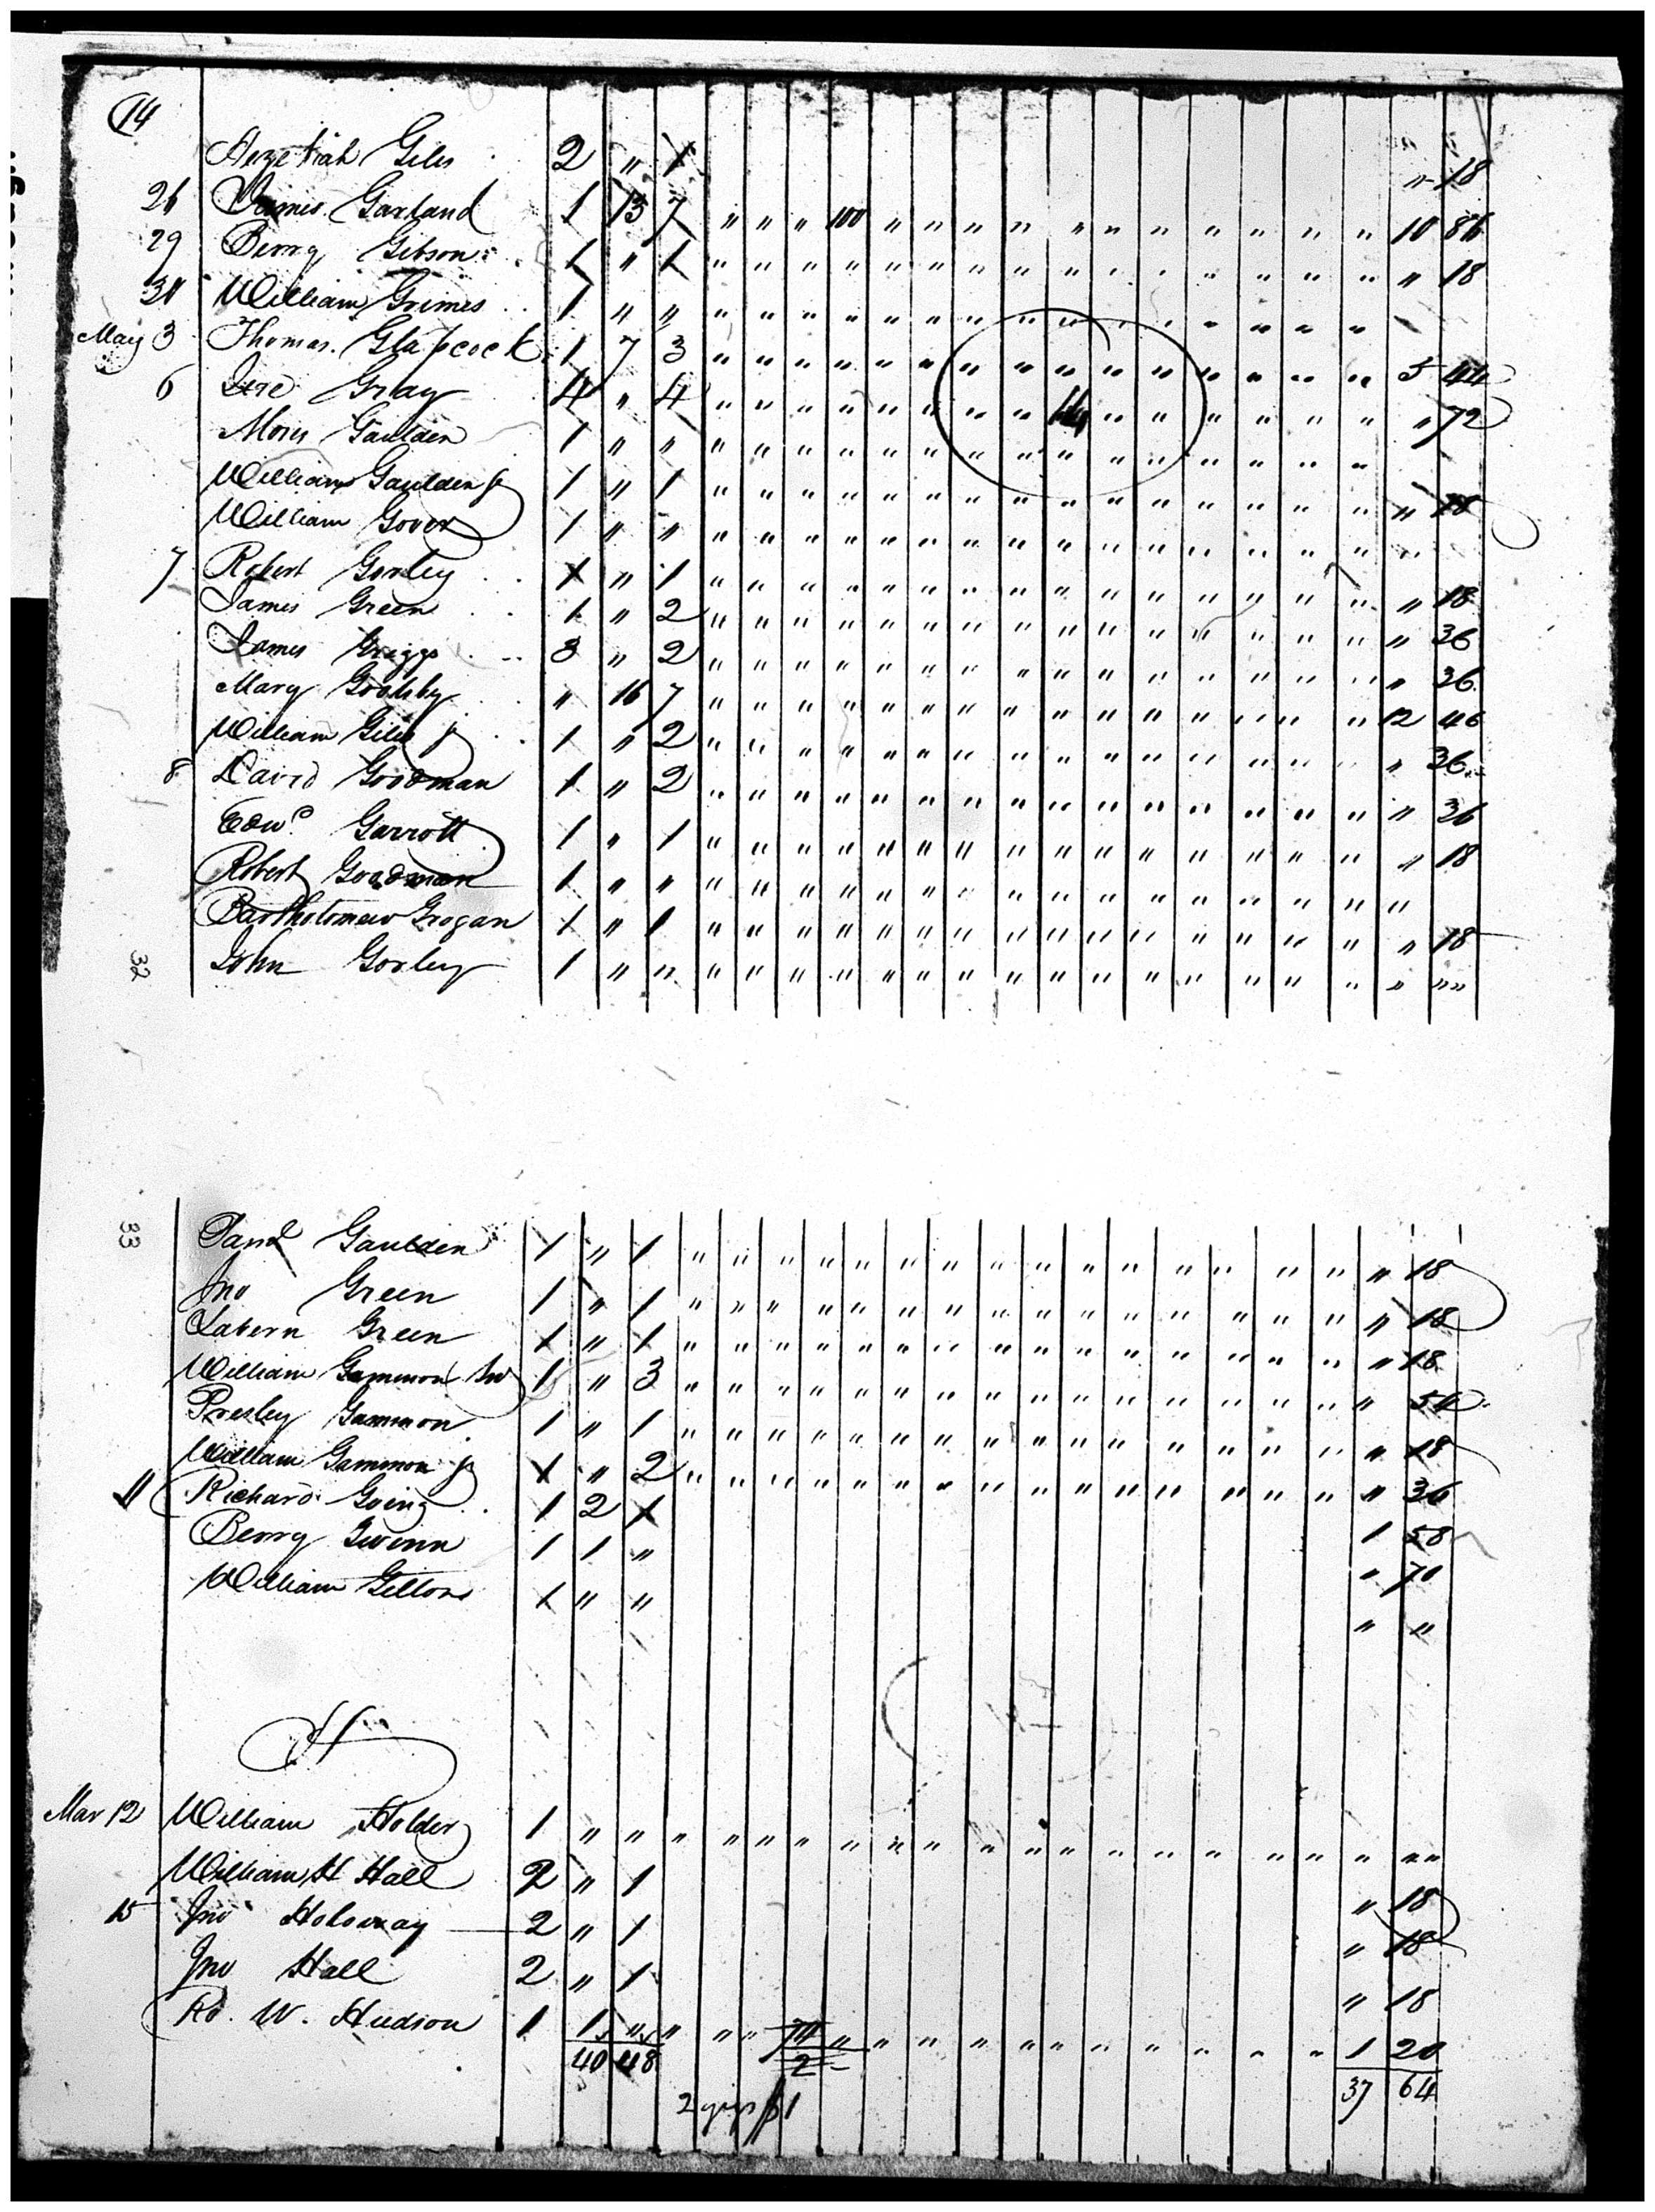 14
Hezekiah Giles 2 " 1 " 18
26 James Garland 1 13 7 " " " 100 " " " " " " " " " " " 10 86
29 Berry Gibson 1 " 1 " " " " " " " " " " " " " " " " 18
30 William Grimes 1 " " " " " " " " " " " " " " " " "
May 3 Thomas Glasscock 1 7 3 " " " " " " " " " " " " " " " 5 44
6 Gray 4 " 4 " " " " " " " " " " " " " " " 72
Gaulden 1 " " " " " " " " " " " " " " " " "
William Gaulden jr 1 " 1 " " " " " " " " " " " " " " " " 18
William Gover 1 " " " " " " " " " " " " " " " " "
7 Robert Gorley 1 " 1 " " " " " " " " " " " " " " " " 18
James Green 1 " 2 " " " " " " " " " " " " " " " " 36
James Griggs 3 " 2 " " " " " " " " " " " " " " " " 36
Mary Goolsby " 16 7 " " " " " " " " " " " " " " " 12 46
William Giles jr 1 " 2 " " " " " " " " " " " " " " " " 36
8 David Goodman 1 " 2 " " " " " " " " " " " " " " " " 36
Edwd Garrott 1 " 1 " " " " " " " " " " " " " " " " 18
Robert Goodman 1 " " " " " " " " " " " " " " " " "
Bartholomew Grogan 1 " 1 " " " " " " " " " " " " " " " " 18
32 John Gorley 1 " " " " " " " " " " " " " " " " " " " "
33 Saml Gaulden 1 " 1 " " " " " " " " " " " " " " " " 18
Jno Green 1 " 1 " " " " " " " " " " " " " " " " 18
Labern Green 1 " 1 " " " " " " " " " " " " " " " " 18
William Gammon Snr 1 " 3 " " " " " " " " " " " " " " " " 54
Presley Gammon 1 " 1 " " " " " " " " " " " " " " " " 18
William Gammon jr 1 " 2 " " " " " " " " " " " " " " " " 36
11 Richard Going 1 2 1 1 58
Berry Gwinn 1 1 " " 70
William 1 " " " "
H
Mar 12 William Holder 1 " " " " " " " " " " " " " " " " " " " "
William H Hall 2 " 1 " 18
15 Jno Holoway 2 " 1 " 18
Jno Hall 2 " 1 " 18
Rd. W. Hudson 1 1 " " " " 74 " " " " " " " " " " " 1 20
40 48 2 37 64
2 gigs $1